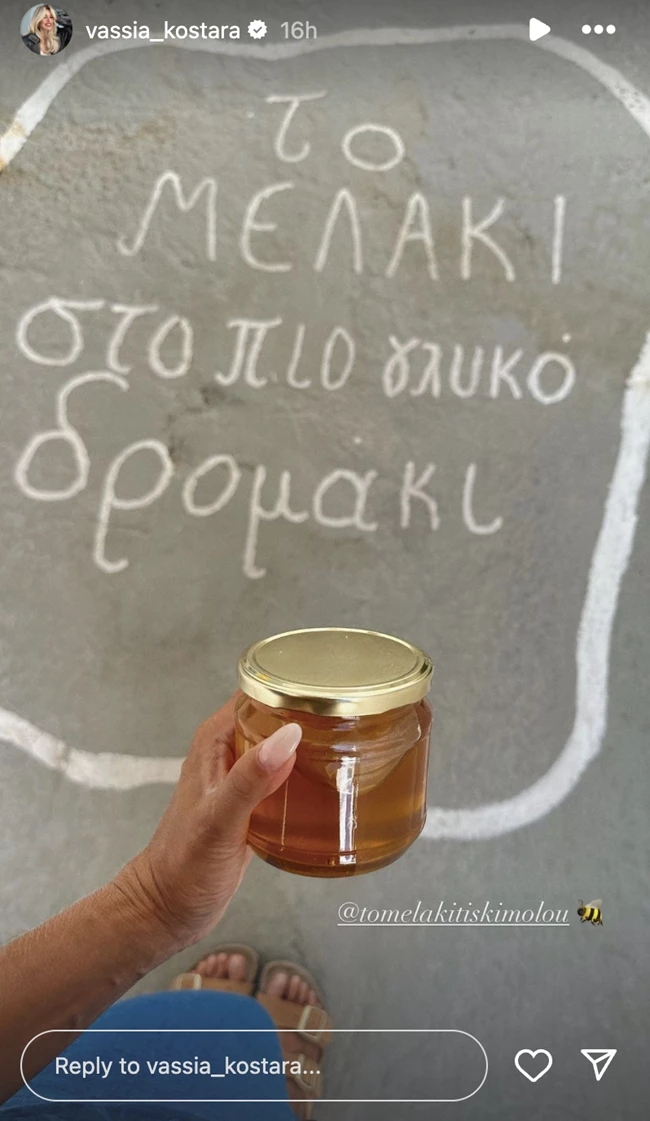 vassia_kostara 16h
το
ΜΕΛΑΚΙ
στο πιο γλυκό
δρομακι
@tomelakitiskimolou
Reply to vassia_kostara...